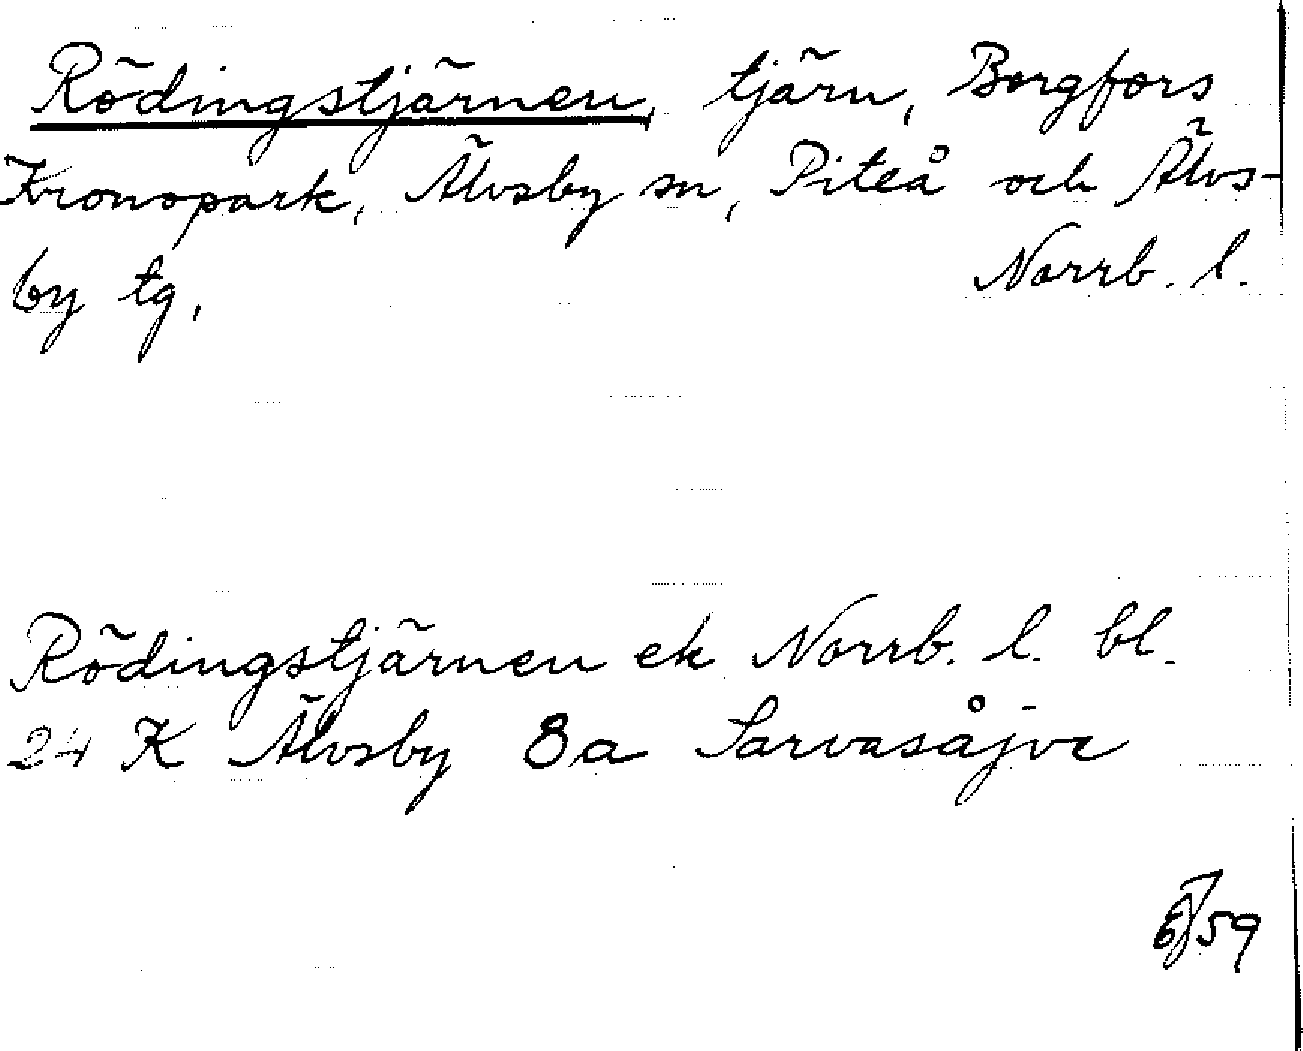 Rödingstjärnen, tjärn, Borgfors
Kronopark, Älvsby sn, Piteå och Älvs-
by tg, Norrb. l.
Rödingstjärnen ek Norrb. l. bl.
24 K Älvsby 8a Sarvasåjve
59